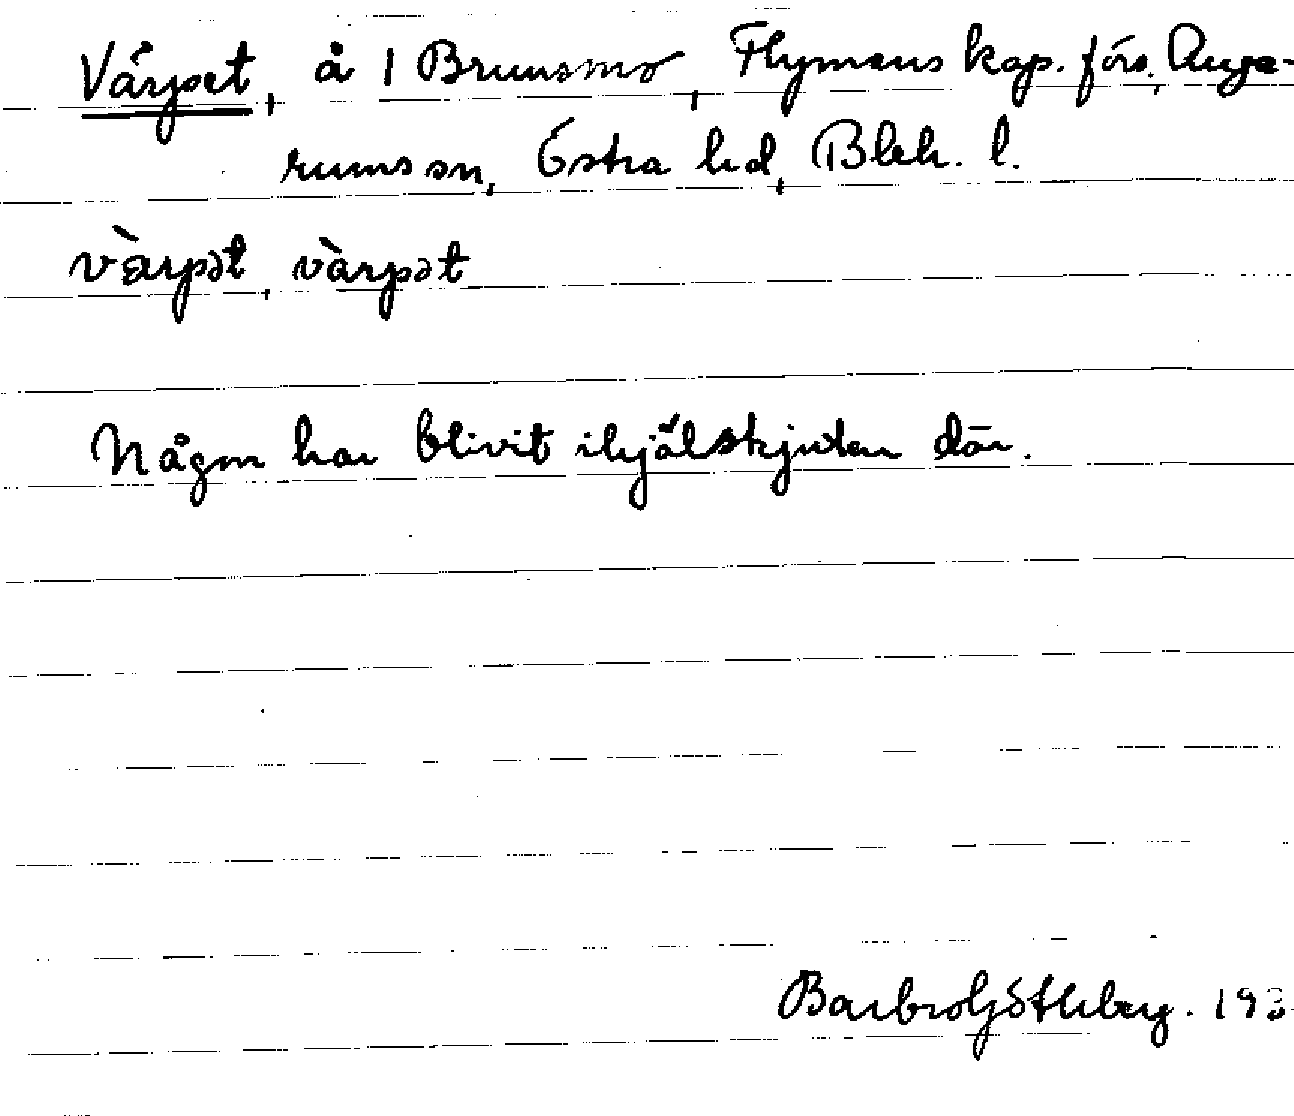 Värpet, å 1 Brunsmo, Flymens kap. förs., Auge-
rums sn, Östra hd, Blek. l.
vàrpət, vàrpət
Någon har blivit ihjälskjuten där.
Barbro Göthberg. 193